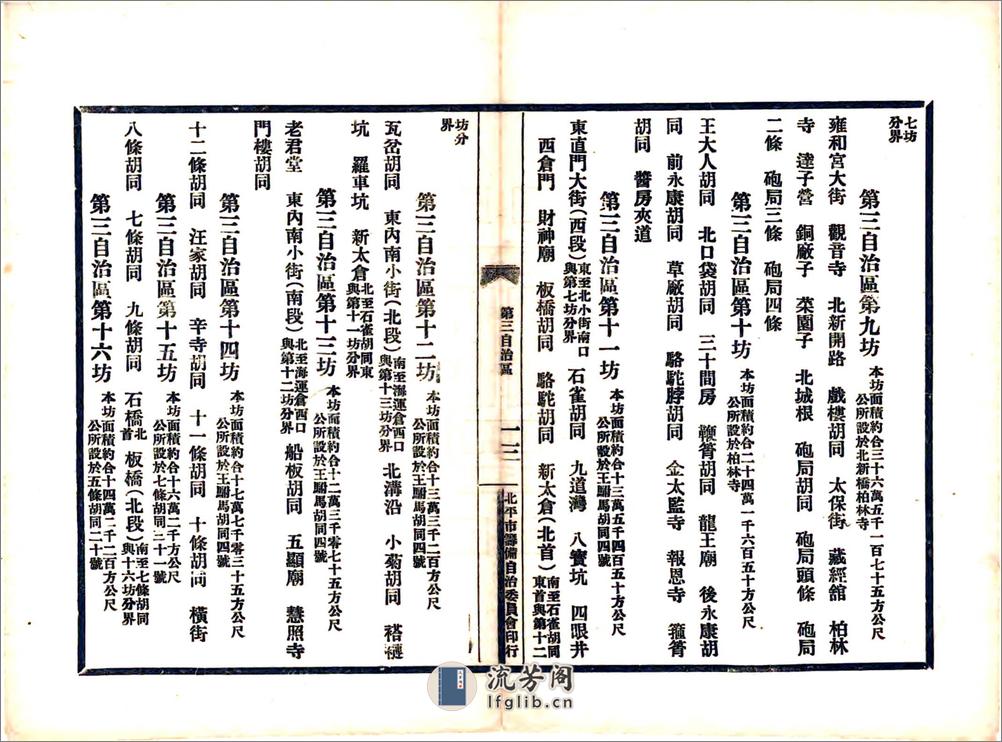 七坊
分界
第三自治區第九坊 本坊面積約合三十六萬五千一百七十五方公尺
公所設於北新橋柏林寺
雍和宮大街 觀音寺 北新開路 戲樓胡同 太保街 藏經館 柏林
寺 達子營 銅廠子 菜園子 北城根 砲局胡同 砲局頭條 砲局
二條 砲局三條 砲局四條
第三自治區第十坊 本坊面積約合二十四萬一千六百五十方公尺
公所設於柏林寺
王大人胡同 北口袋胡同 三十間房 鞭筲胡同 龍王廟 後永康胡
同 前永康胡同 草廠胡同 駱駝脖胡同 金太監寺 報恩寺 箍筲
胡同 醬房夾道
第三自治區第十一坊 本坊面積約合十三萬五千四百五十方公尺
公所設於王駙馬胡同四號
東直門大街(西段)東至北小街南口
與第七坊分界 石雀胡同 九道灣 八寶坑 四眼井
西倉門 財神廟 板橋胡同 駱駝胡同 新太倉(北首)南至石雀胡同
東首與第十二
第三自治區
一三
北平市籌備自治委員會印行
坊分
界
第三自治區第十二坊 本坊面積約合十三萬三千二百方公尺
公所設於王駙馬胡同四號
瓦岔胡同 東內南小街(北段)南至海運倉西口
與第十三坊分界 北溝沿 小菊胡同 褡褳
坑 羅車坑 新太倉北至石雀胡同東
與第十一坊分界
第三自治區第十三坊 本坊面積約合十二萬三千零七十五方公尺
公所設於王駙馬胡同四號
老君堂 東內南小街(南段)北至海運倉西口
與第十二坊分界 船板胡同 五顯廟 慧照寺
門樓胡同
第三自治區第十四坊 本坊面積約合十七萬七千零三十五方公尺
公所設於王駙馬胡同四號
十二條胡同 汪家胡同 辛寺胡同 十一條胡同 十條胡同 橫街
第三自治區第十五坊 本坊面積約合十六萬二千方公尺
公所設於七條胡同三十一號
八條胡同 七條胡同 九條胡同 石橋北
首 板橋(北段)南至七條胡同
與十六坊分界
第三自治區第十六坊 本坊面積約合十四萬二千二百方公尺
公所設於五條胡同二十號
流芳阁
lfglib.cn